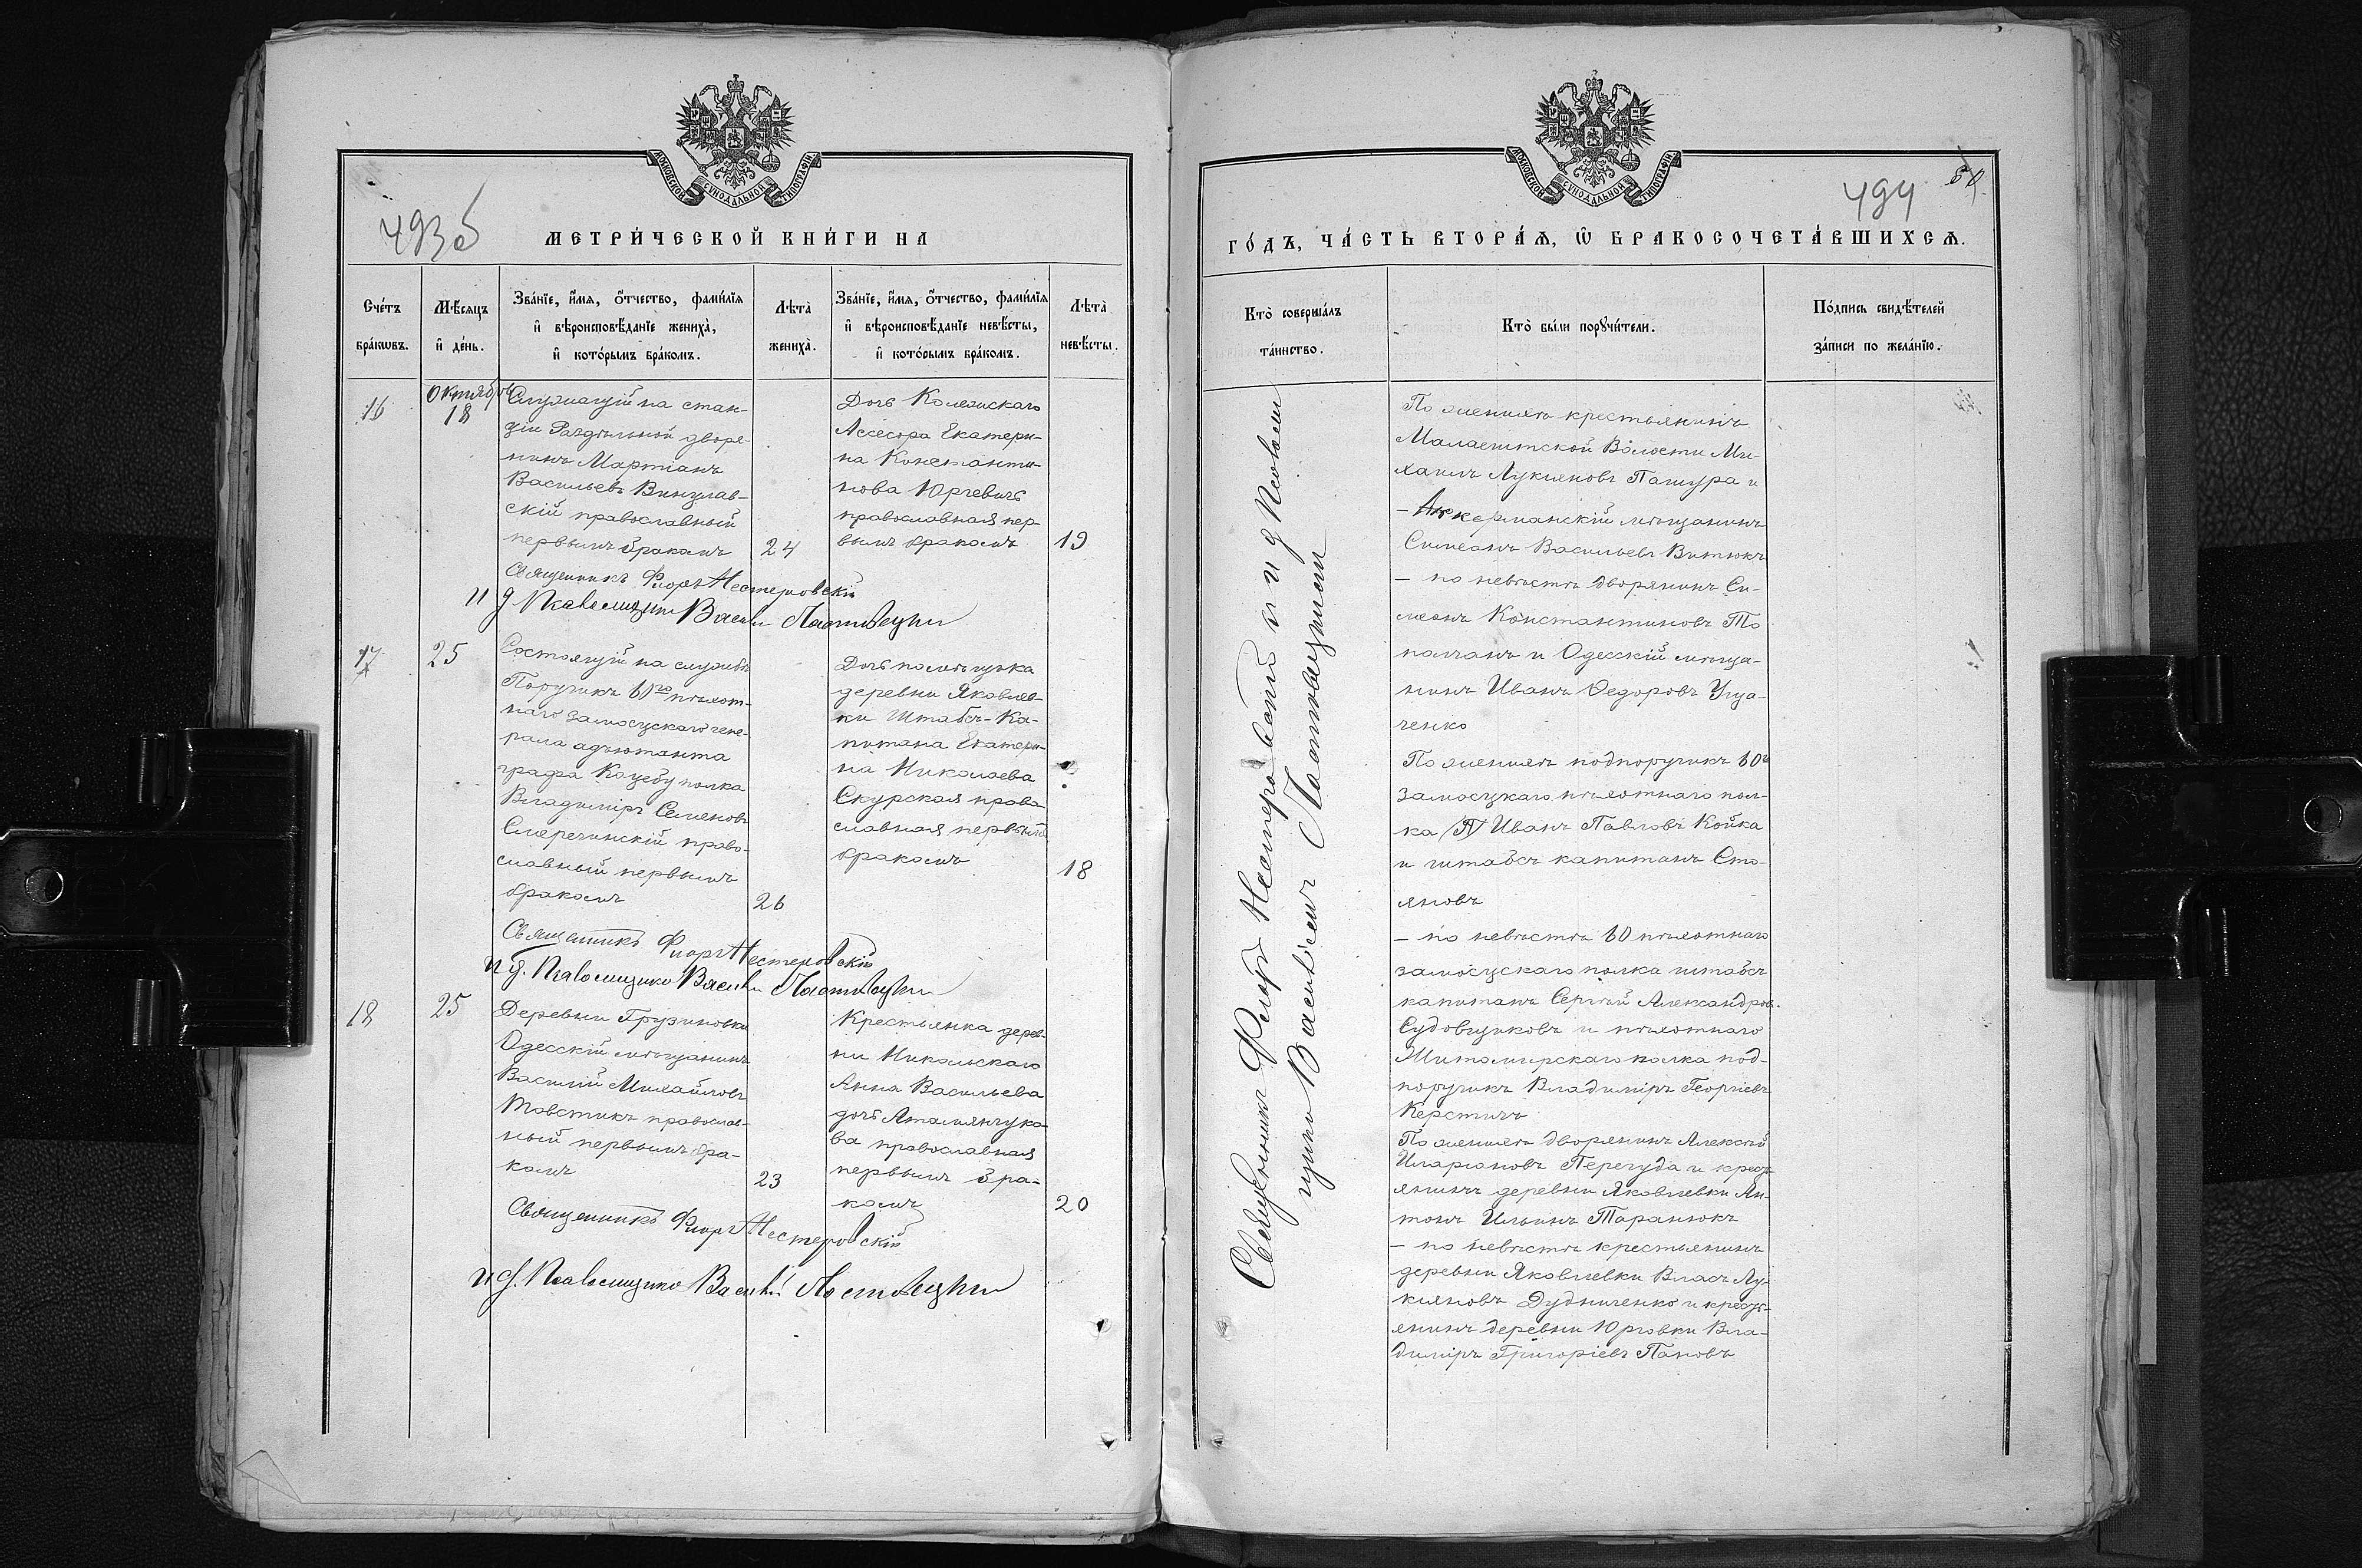 МОСКОВСКОЙ СУНОДАЛЬНОЙ ТИПОГРАФІИ.
493 б
МЕТРИ́ЧЕСКОЙ КНИ́ГИ НА
Сче́тъ бра́кωвъ.
Мѣ́сяцъ и҆ де́нь.
Зва́нїе, и҆́мя, ѻ҆́тчество, фами́лїя
и҆ вѣроисповѣ́данїе жениха̀,
и҆ кото́рымъ бра́комъ.
Лѣта̀ жениха̀.
Зва́нїе, и҆́мя, ѻ҆́тчество, фами́лїя
и҆ вѣроисповѣ́данїе невѣ́сты,
и҆ кото́рымъ бра́комъ.
Лѣта̀ невѣ́сты.
16
Октябрь
18
Служащій на стан-
ціи Раздѣльной дворя-
нинъ Мартіанъ
Васильевъ
скій православный
первымъ бракомъ
24
Дочь Колежскаго
Ассесора Екатери-
на Константи-
нова Юргевичъ
православная пер
вымъ бракомъ
19
Священникъ Флоръ Нестеровскій
и д Псаломщика Василій
17
25
Состоящій на службѣ
Поручикъ 60го пѣхот-
наго замосцскаго гене-
рала адъютанта
графа Коцебу полка
Владиміръ Семеновъ
Смеречинскій право-
славный первымъ
бракомъ
26
Дочь помѣщика
деревни Яковлев-
ки Штабсъ-Ка-
питана Екатери-
на Николаева
Скурская право
славная первымъ
бракомъ
18
Священникъ Флоръ Нестеровскій
и д. Псаломщика Василій
18
25
Деревни Грузиновки
Одесскій мѣщанинъ
Василій Михайловъ
Товстикъ православ-
ный первымъ бра-
комъ
23
Крестьянка дерев-
ни Никольскаго
Анна Васильева
дочь Аталянчуко
ва православная
первымъ бра-
комъ
20
Священникъ Флоръ Нестеровскій
и д. Псаломщика Василій
МОСКОВСКОЙ СУНОДАЛЬНОЙ ТИПОГРАФІИ.
494
ГО́ДЪ, ЧА́СТЬ ВТОРА́Я, Ѡ҆ БРАКОСОЧЕТА́ВШИХСЯ.
Кто̀ соверша́лъ та́инство.
Кто̀ бы́ли порꙋчи́тели.
По́дпись свидѣ́телей за́писи по жела́нїю.
Священникъ Флоръ Нестеровскій и д Псалом
щика Василій
По женихѣ крестьянинъ
Малаештской Волости Ми-
хаилъ Лукіановъ Пашура и
- Аккерманскій мѣщанинъ
Симеонъ Васильевъ Витюкъ
- по невѣстѣ дворянинъ Си-
меонъ Константиновъ То
палъ и Одесскій мѣща-
нинъ Иванъ Ѳедоровъ Уща-
ченко
По женихѣ подпоручикъ 60го
замосцкаго пѣхотнаго пол-
ка Иванъ Павловъ Койка
и штабсъ капитанъ Сто-
яновъ
- по невѣстѣ 60 пѣхотнаго
замосцскаго полка штабсъ
капитанъ Сергѣй Александров.
Судовщиковъ и пѣхотнаго
Житомирскаго полка под-
поручикъ Владиміръ Георгіевъ
Керстичъ
По женихѣ дворянинъ Алексѣй
Иларіоновъ Перегуда и крест
янинъ деревни Яковлевки Ан-
тонъ Ильинъ Таранюкъ
- по невѣстѣ крестьянинъ
деревни Яковлевки Власъ Лу-
кіановъ Дудниченко и крест-
янинъ деревни Юрговки Вла-
диміръ Григоріевъ Пановъ